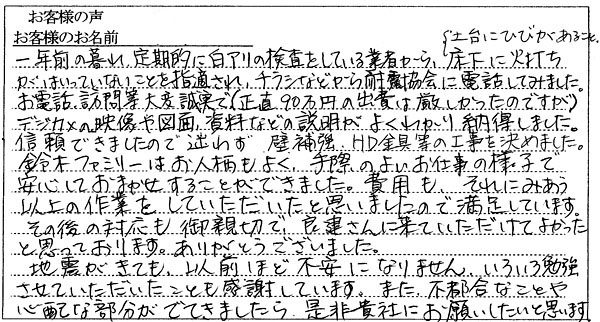 お客様の声
お客様のお名前
{土台にひびがあること、
一年前の暮れ、定期的に白アリの検査をしている業者から、床下に火打ち
がはいっていないことを指適され、チラシなどから耐震協会に電話してみました。
お電話、訪問等大変誠実で(正直90万円の出費は厳しかったのですが)
デジカメの映像や図面、資料などの説明がよくわかり納得しました。
信頼できましたので迷わず 壁補強、HD金具等の工事を決めました。
鈴木ファミリーはお人柄もよく、手際のよいお仕事の様子で
安心しておまかせすることができました。費用も、それにみあう
以上の作業をしていただいたと思いましたので満足しています。
その後の対応も御親切で、良建さんに来ていただけてよかった
と思っております。ありがとうございました。
地震がきても、以前ほど不安になりません、いろいろ勉強
させていただいたことも感謝しています。また、不都合なことや
心配な部分がでてきましたら、是非貴社にお願いしたいと思います。